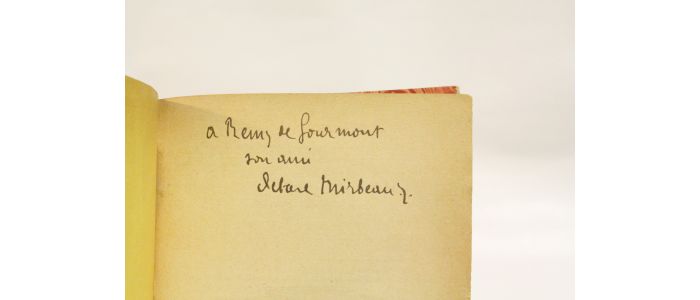 a Remy de Gourmont
son ami
Octave Mirbeau